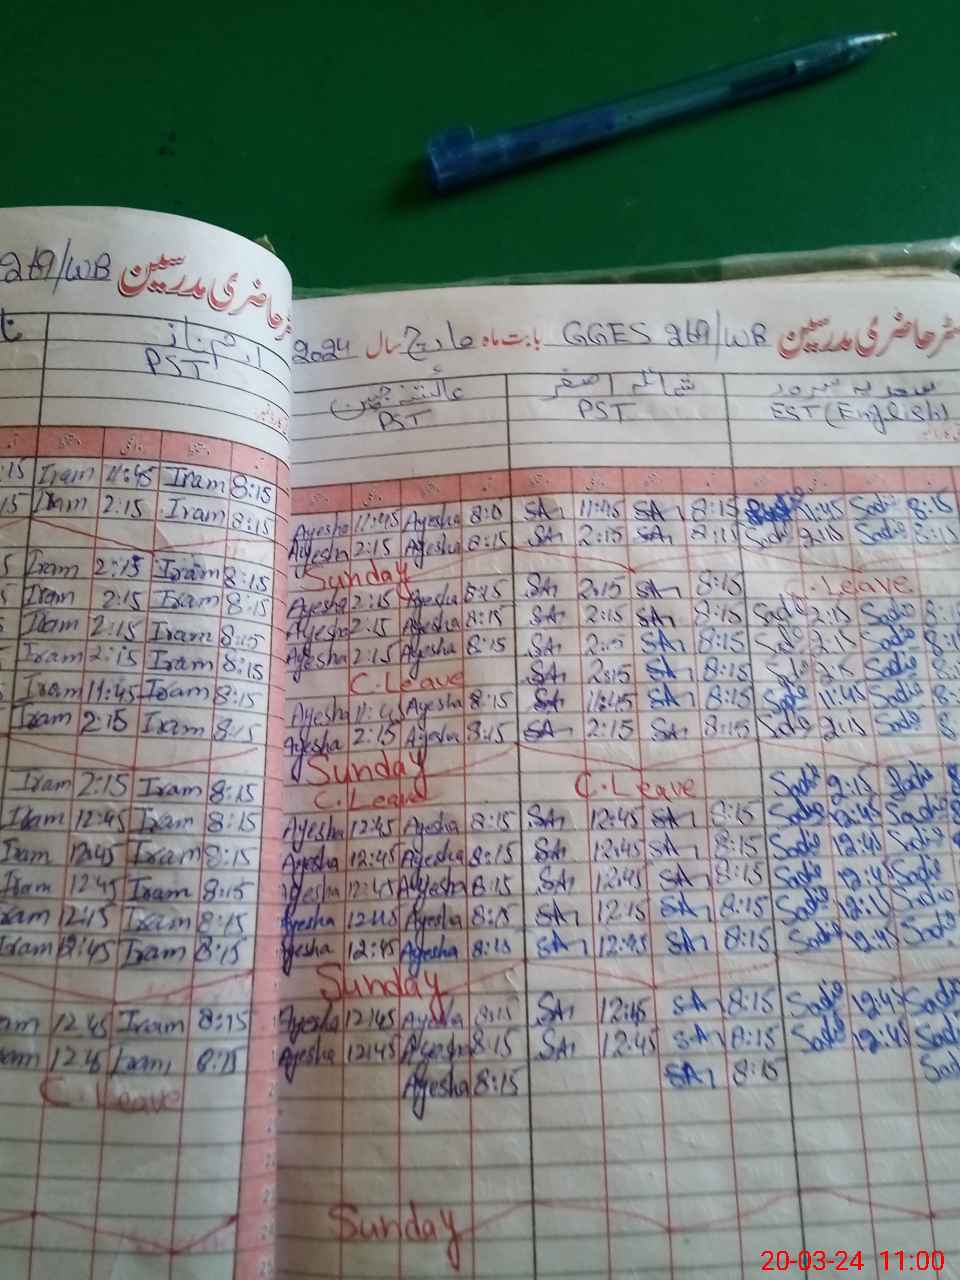 269/WB رجسٹر حاضری مدرسین
ارم ناز
PST
15 Iram 11:45 Iram 8:15
15 Iram 2:15 Iram 8:15
5 Iram 2:15 Iram 8:15
Iram 2:15 Iram 8:15
Iram 2:15 Iram 8:15
Iram 2:15 Iram 8:15
Iram 11:45 Iram 8:15
Iram 2:15 Iram 8:15
Iram 2:15 Iram 8:15
Iram 12:45 Iram 8:15
Iram 12:45 Iram 8:15
Iram 12:45 Iram 8:15
ram 12:15 Iram 8:15
Iram 12:45 Iram 8:15
am 12:45 Iram 8:15
am 12:45 Iram 8:15
C. Leave
رجسٹر حاضری مدرسین GGES 269/WB بابت ماہ مارچ سال 2024
شمائلہ اصغر
PST PST EST (English)
Ayesha 11:45 Ayesha 8:0 SA 11:45 SA 8:15 11:45 Sadia 8:15
Ayesha 2:15 Ayesha 8:15 SA 2:15 SA 8:15 Sadia 2:15 Sadia 8:15
Sunday
Ayesha 2:15 Ayesha 8:15 SA 2:15 SA 8:15 C. Leave
Ayesha 2:15 Ayesha 8:15 SA 2:15 SA 8:15 Sadia 2:15 Sadia 8:1
Ayesha 2:15 Ayesha 8:15 SA 2:15 SA 8:15 Sadia 2:15 Sadia 8:1
C. Leave SA 2:15 SA 8:15 Sadia 2:15 Sadia 8:1
Ayesha 11:45 Ayesha 8:15 SA 11:45 SA 8:15 Sadia 11:45 Sadia 8:
Ayesha 2:15 Ayesha 8:15 SA 2:15 SA 8:15 Sadia 2:15 Sadia 8
Sunday
C. Leave C. Leave Sadia 2:15 Sadia 8
Ayesha 12:45 Ayesha 8:15 SA 12:45 SA 8:15 Sadia 12:45 Sadia 8
Ayesha 12:45 Ayesha 8:15 SA 12:45 SA 8:15 Sadia 12:45 Sadia
Ayesha 12:45 Ayesha 8:15 SA 12:45 SA 8:15 Sadia 12:4 Sadia
Ayesha 12:45 Ayesha 8:15 SA 12:15 SA 8:15 Sadia Sadia
Ayesha 12:45 Ayesha 8:15 SA 12:45 SA 8:15 Sadia 12:45 Sadia
Sunday
Ayesha 12:45 Ayesha 8:15 SA 12:45 SA 8:15 Sadia 12:45 Sadia
Ayesha 12:45 Ayesha 8:15 SA 12:45 SA 8:15 Sadia 12:45 Sadia
Ayesha 8:15 SA 8:15 Sad
Sunday
20-03-24 11:00